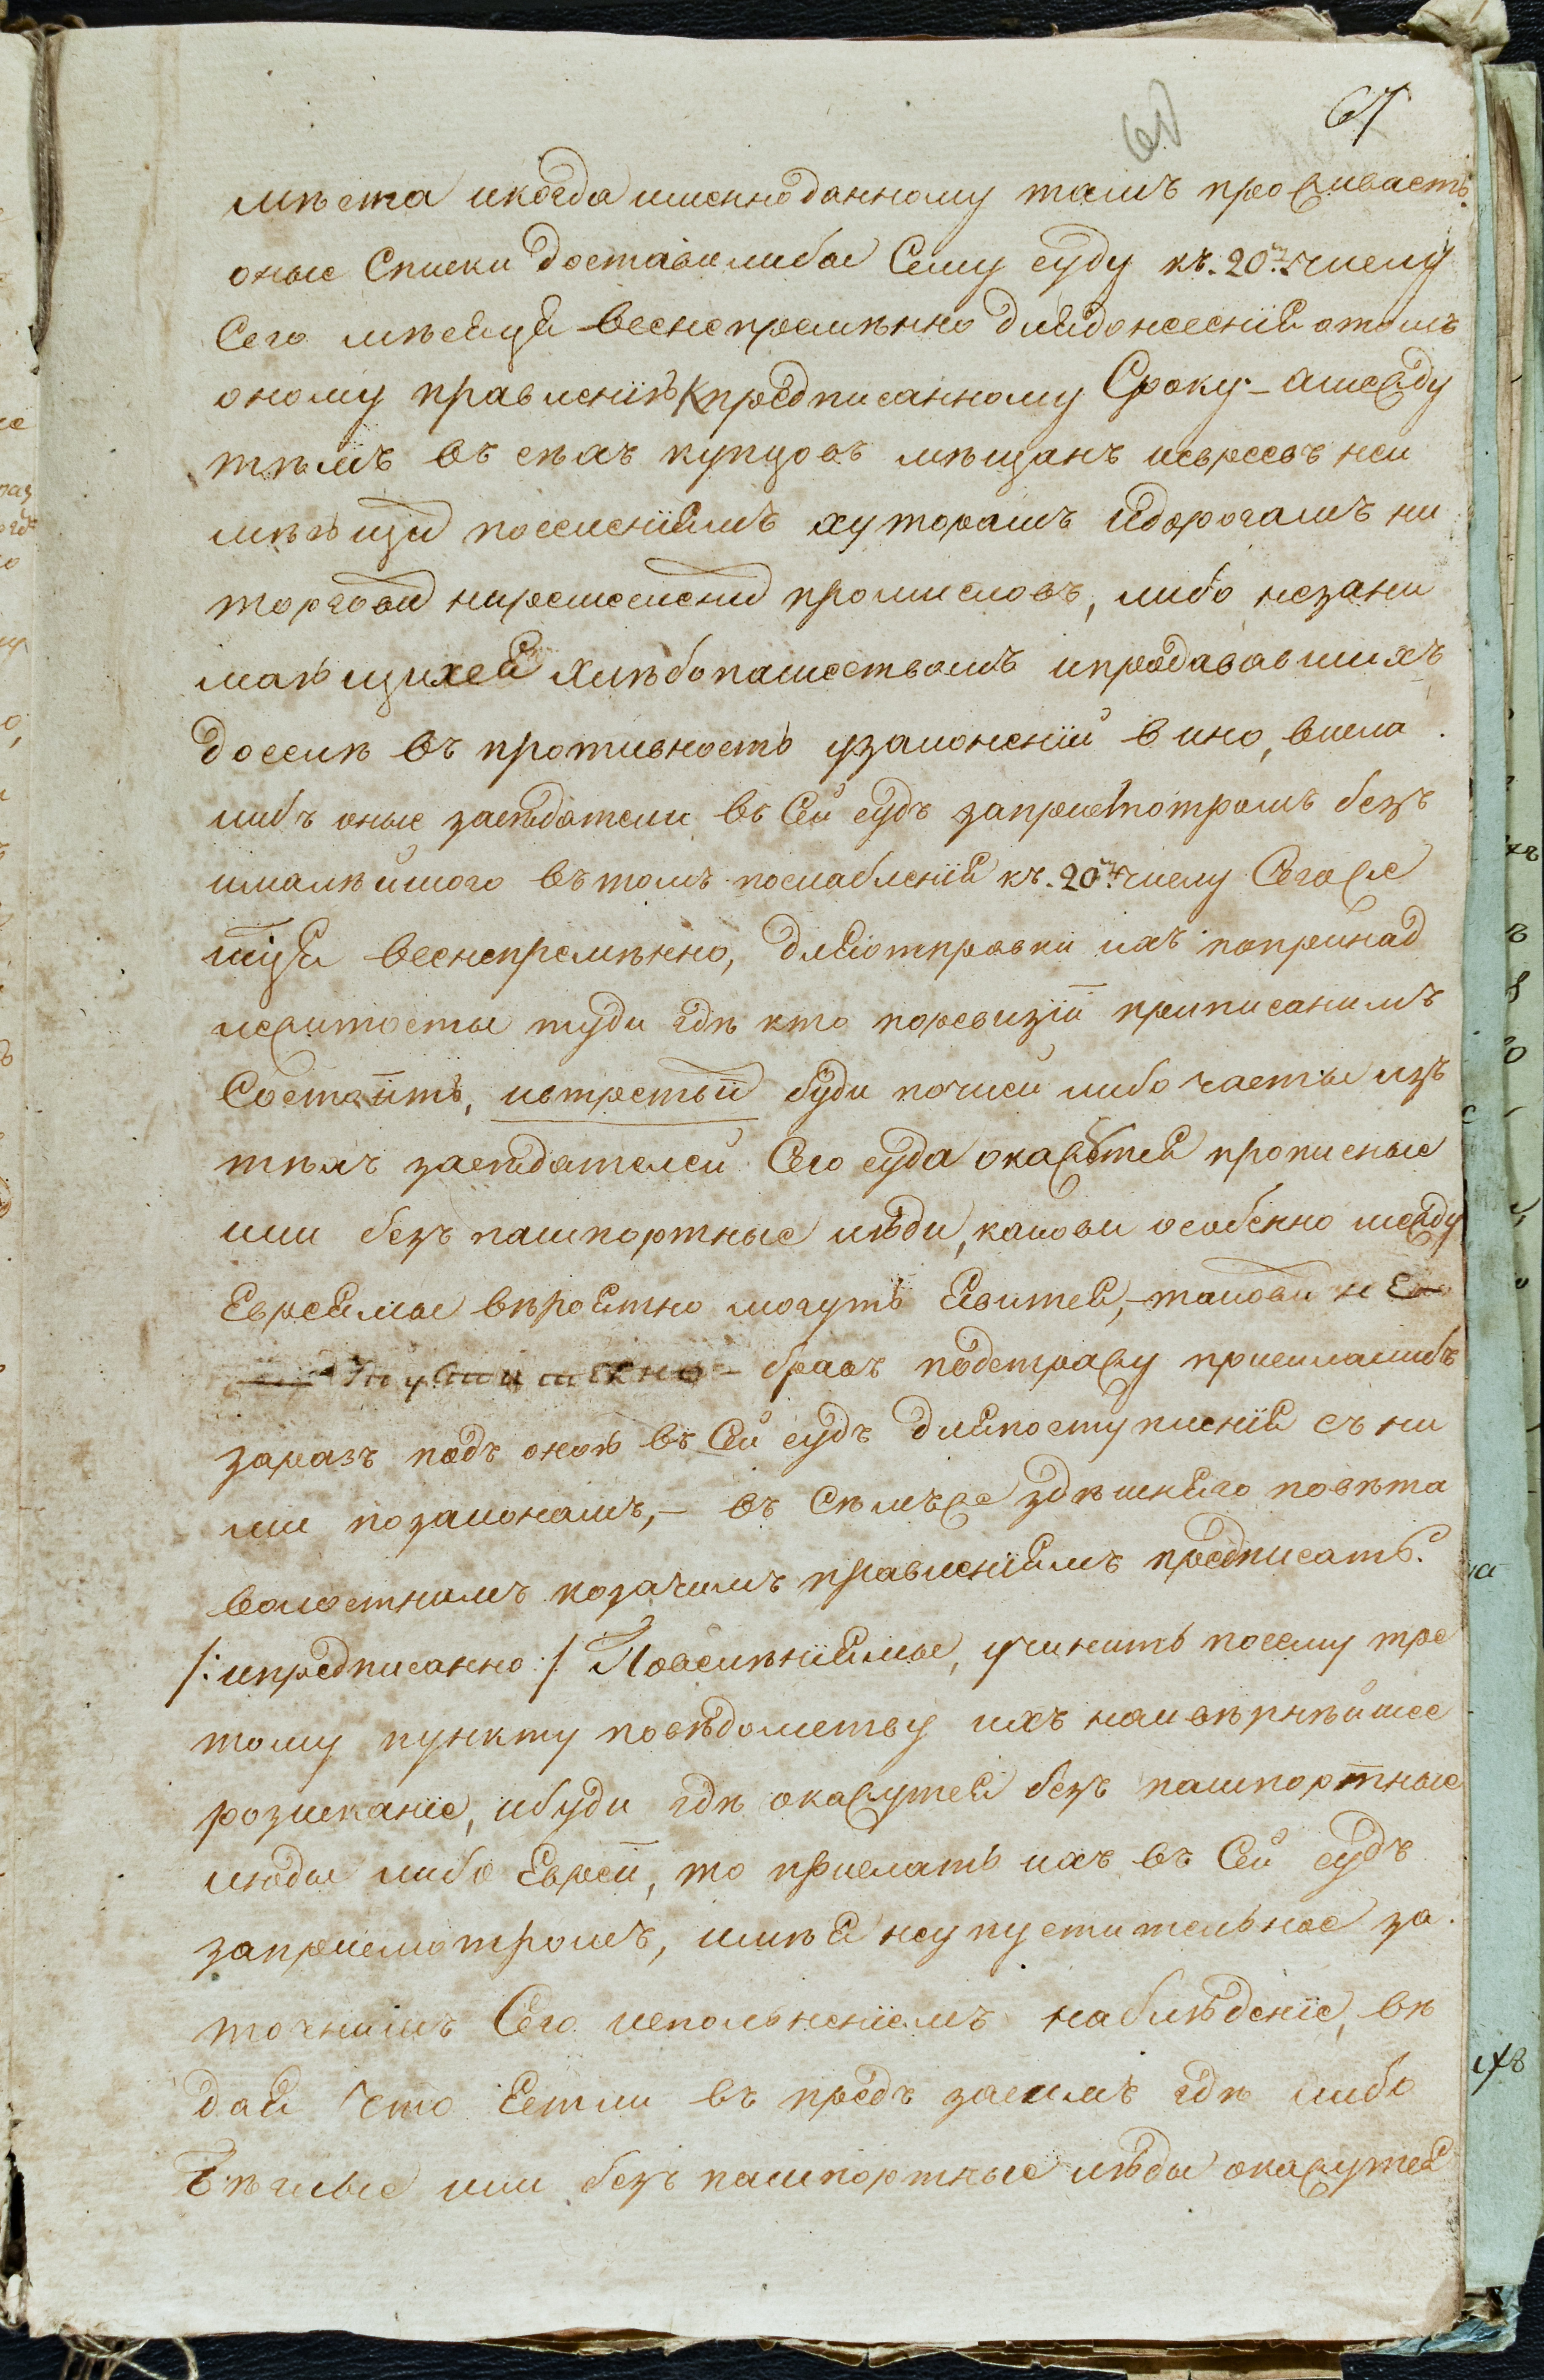 67
мѣста икогда именноданному тамъ проживаетъ.
оные Списки доставилибы Сему суду къ. 20му. числу
Сего мѣсяца всенепремѣнно длядонесенія отомъ
оному правленію Кпредписанному Сроку; – амежду
тѣмъ всѣхъ купцовъ мѣщанъ иевреевъ неи
мѣющи поселеніямъ хуторамъ идорогамъ ни
торговли ниремесленни промисловъ, либо незани
мающихся хлѣбопашествомъ ипродававшихъ
доселѣ въ противность узаконеній вино, висла
либъ оные засѣдатели въ Сей судъ заприсмотромъ безъ
ималѣйшого втомъ послабленія къ. 20му числу Сегоже
мца всенепремѣнно, дляотправки ихъ попринад
лежитости туди гдѣ кто поревизіи приписанимъ
Состоитъ, ивтретьй буди почему либо части изъ
тѣхъ засѣдателей Сего суда окажется прописные
или безъ пашпортные люди, какови особенно между
Евреями вѣроятно могутъ явится, – такови
бравъ подстражу присилалибъ
заразъ подъ оною въ Сей судъ дляпоступленія съ ни
ми позаконамъ, – въ Сѣмъже здѣшняго повѣта
волостнимъ козачимъ правленіямъ предписать.
/: ипредписанно :/ Повелѣніями, учинить посему тре
тому пункту повѣдомству ихъ наивѣрнѣйшее
розисканіе, ибуди гдѣ окажутся безъ пашпортные
люди либо Евреи, то прислать ихъ въ Сей судъ
заприсмотромъ, имѣя неупустительное за
точнимъ Сего исполненіемъ наблюденіе, вѣ
дая что Естли въ предъ засимъ гдѣ либо
бѣглые или безъ пашпортные люди окажутся